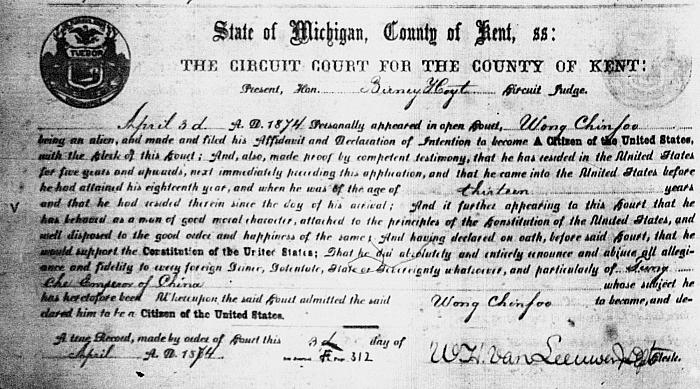 TUEBOR
State of Michigan, County of Kent, ss:
THE CIRCUIT COURT FOR THE COUNTY OF KENT:
Present, Hon. Birney Hoyt Circuit Judge.
April 3d A. D. 1874 Personally appeared in open Court, Wong Chinfoo
being an alien, and made and filed his Affidavit and Declaration of Intention to become A Citizen of the United States,
with the Clerk of this Court; And, also, made proof by competent testimony, that he has resided in the United States
for five years and upwards, next immediately preceding this application, and that he came into the United States before
he had attained his eighteenth year, and when he was of the age of thirteen years
and that he had resided therein since the day of his arrival; And it further appearing to this Court that he
has behaved as a man of good moral character, attached to the principles of the Constitution of the United States, and
well disposed to the good order and happiness of the same; And having declared on oath, before said Court, that he
would support the Constitution of the United States; That he did absolutely and entirely renounce and abjure all allegi-
ance and fidelity to every foreign Prince, Potentate, State or Sovereignty whatsoever, and particularly of
the Emperor of China whose subject he
has heretofore been Whereupon, the said Court admitted the said Wong Chinfoo to become, and de-
clared him to be a Citizen of the United States.
A true Record, made by order of Court this 3d day of
April A. D. 1874 312
W. H. Van Leeuwen Clerk.